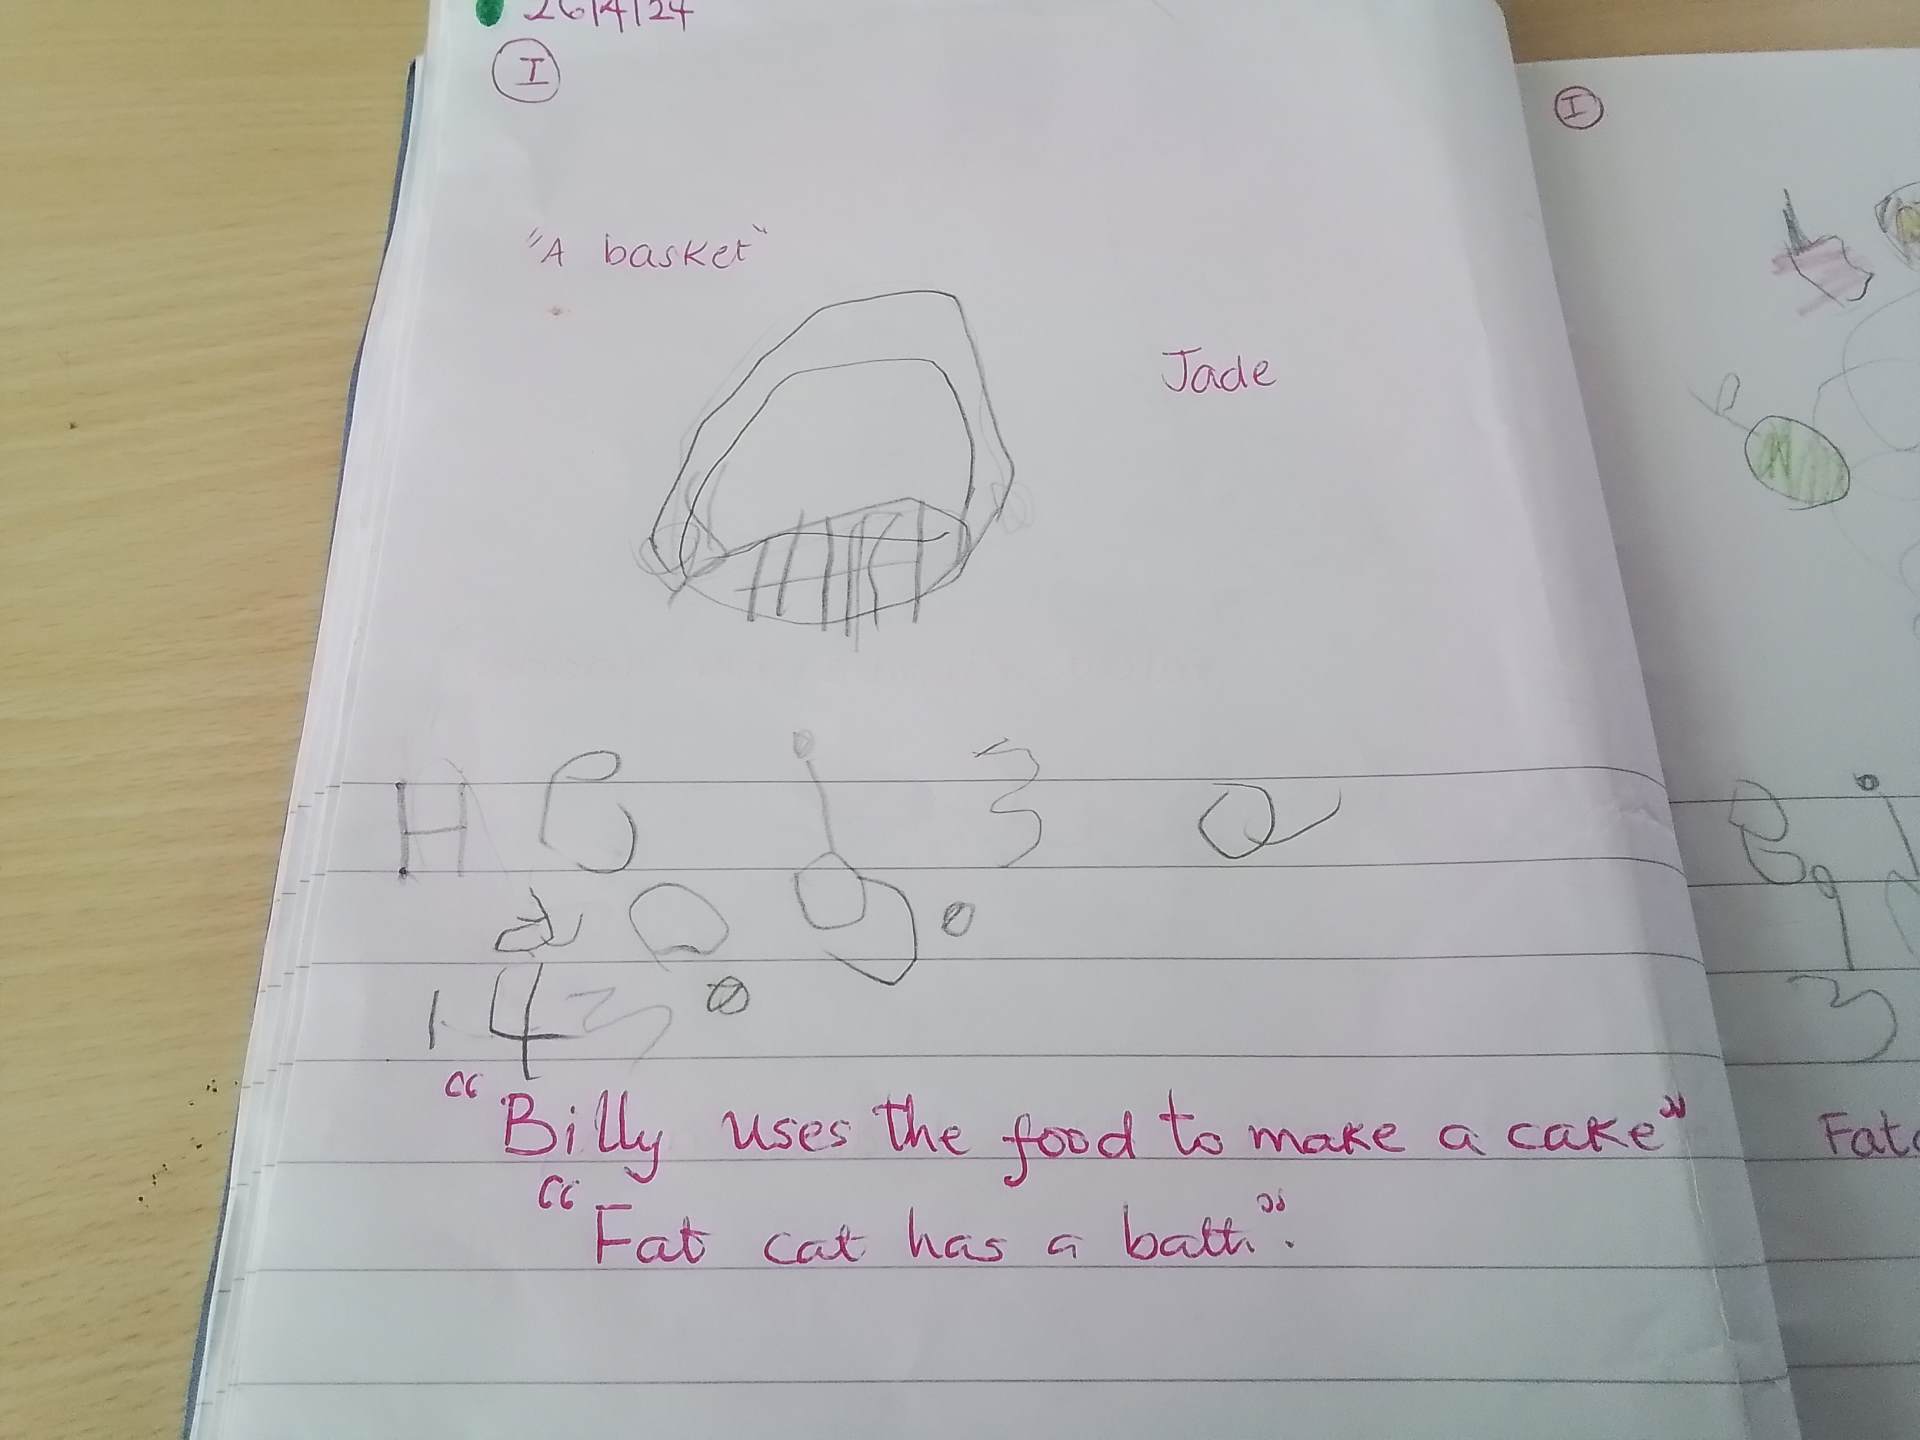 26/4/24
I
I
"A basket"
Jade
H
1 4 3
"Billy uses the food to make a cake"
"Fat cat has a bath".
3